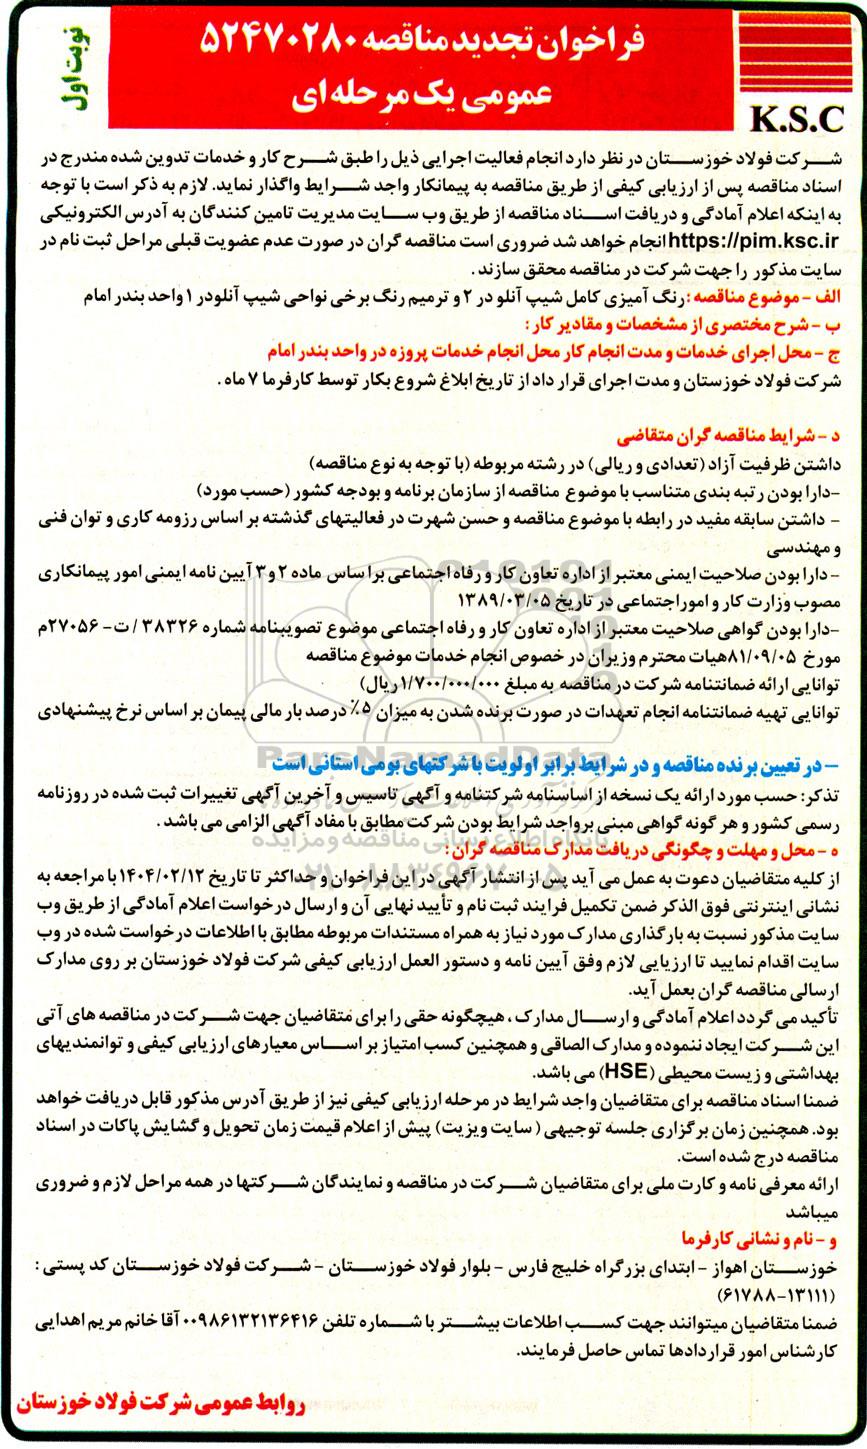 نوبت اول
فراخوان تجدید مناقصه ۵۲۴۷۰۲۸۰
عمومی یک مرحله ای
K.S.C
شرکت فولاد خوزستان در نظر دارد انجام فعالیت اجرایی ذیل را طبق شرح کار و خدمات تدوین شده مندرج در
اسناد مناقصه پس از ارزیابی کیفی از طریق مناقصه به پیمانکار واجد شرایط واگذار نماید. لازم به ذکر است با توجه
به اینکه اعلام آمادگی و دریافت اسناد مناقصه از طریق وب سایت مدیریت تامین کنندگان به آدرس الکترونیکی
https://pim.ksc.ir انجام خواهد شد ضروری است مناقصه گران در صورت عدم عضویت قبلی مراحل ثبت نام در
سایت مذکور را جهت شرکت در مناقصه محقق سازند.
الف - موضوع مناقصه: رنگ آمیزی کامل شیپ آنلو در ۲ و ترمیم رنگ برخی نواحی شیپ آنلودر ۱ واحد بندر امام
ب - شرح مختصری از مشخصات و مقادیر کار:
ج - محل اجرای خدمات و مدت انجام کار محل انجام خدمات پروزه در واحد بندر امام
شرکت فولاد خوزستان و مدت اجرای قرار داد از تاریخ ابلاغ شروع بکار توسط کارفرما ۷ ماه.
د - شرایط مناقصه گران متقاضی
داشتن ظرفیت آزاد (تعدادی و ریالی) در رشته مربوطه (با توجه به نوع مناقصه)
-دارا بودن رتبه بندی متناسب با موضوع مناقصه از سازمان برنامه و بودجه کشور (حسب مورد)
- داشتن سابقه مفید در رابطه با موضوع مناقصه و حسن شهرت در فعالیتهای گذشته بر اساس رزومه کاری و توان فنی
و مهندسی
- دارا بودن صلاحیت ایمنی معتبر از اداره تعاون کار و رفاه اجتماعی براساس ماده ۲ و ۳ آیین نامه ایمنی امور پیمانکاری
مصوب وزارت کار و اموراجتماعی در تاریخ ۱۳۸۹/۰۳/۰۵
-دارا بودن گواهی صلاحیت معتبر از اداره تعاون کار و رفاه اجتماعی موضوع تصویبنامه شماره ۳۸۳۲۶ / ت- ۲۷۰۵۶م
مورخ ۸۱/۰۹/۰۵هیات محترم وزیران در خصوص انجام خدمات موضوع مناقصه
توانایی ارائه ضمانتنامه شرکت در مناقصه به مبلغ ۱/۷۰۰/۰۰۰/۰۰۰ ریال)
توانایی تهیه ضمانتنامه انجام تعهدات در صورت برنده شدن به میزان ۵٪ درصد بار مالی پیمان بر اساس نرخ پیشنهادی
ParsNamadData
- در تعیین برنده مناقصه و در شرایط برابر اولویت با شرکتهای بومی استانی است
تذکر: حسب مورد ارائه یک نسخه از اساسنامه شرکتنامه و آگهی تاسیس و آخرین آگهی تغییرات ثبت شده در روزنامه
رسمی کشور و هر گونه گواهی مبنی برواجد شرایط بودن شرکت مطابق با مفاد آگهی الزامی می باشد.
پایگاه اطلاع رسانی مناقصه و مزایده
ه - محل و مهلت و چگونگی دریافت مدارک مناقصه گران:
از کلیه متقاضیان دعوت به عمل می آید پس از انتشار آگهی در این فراخوان و حداکثر تا تاریخ ۱۴۰۴/۰۲/۱۲ با مراجعه به
نشانی اینترنتی فوق الذکر ضمن تکمیل فرایند ثبت نام و تأیید نهایی آن و ارسال درخواست اعلام آمادگی از طریق وب
سایت مذکور نسبت به بارگذاری مدارک مورد نیاز به همراه مستندات مربوطه مطابق با اطلاعات درخواست شده در وب
سایت اقدام نمایید تا ارزیابی لازم وفق آیین نامه و دستور العمل ارزیابی کیفی شرکت فولاد خوزستان بر روی مدارک
ارسالی مناقصه گران بعمل آید.
تأکید می گردد اعلام آمادگی و ارسال مدارک، هیچگونه حقی را برای متقاضیان جهت شرکت در مناقصه های آتی
این شرکت ایجاد ننموده و مدارک الصاقی و همچنین کسب امتیاز بر اساس معیارهای ارزیابی کیفی و توانمندیهای
بهداشتی و زیست محیطی (HSE) می باشد.
ضمنا اسناد مناقصه برای متقاضیان واجد شرایط در مرحله ارزیابی کیفی نیز از طریق آدرس مذکور قابل دریافت خواهد
بود. همچنین زمان برگزاری جلسه توجیهی (سایت ویزیت) پیش از اعلام قیمت زمان تحویل و گشایش پاکات در اسناد
مناقصه درج شده است.
ارائه معرفی نامه و کارت ملی برای متقاضیان شرکت در مناقصه و نمایندگان شرکتها در همه مراحل لازم و ضروری
میباشد
و - نام و نشانی کارفرما
خوزستان اهواز - ابتدای بزرگراه خلیج فارس - بلوار فولاد خوزستان - شرکت فولاد خوزستان کد پستی:
(۶۱۷۸۸-۱۳۱۱۱)
ضمنا متقاضیان میتوانند جهت کسب اطلاعات بیشتر با شماره تلفن ۰۰۹۸۶۱۳۲۱۳۶۴۱۶ آقا خانم مریم اهدایی
کارشناس امور قراردادها تماس حاصل فرمایند.
روابط عمومی شرکت فولاد خوزستان